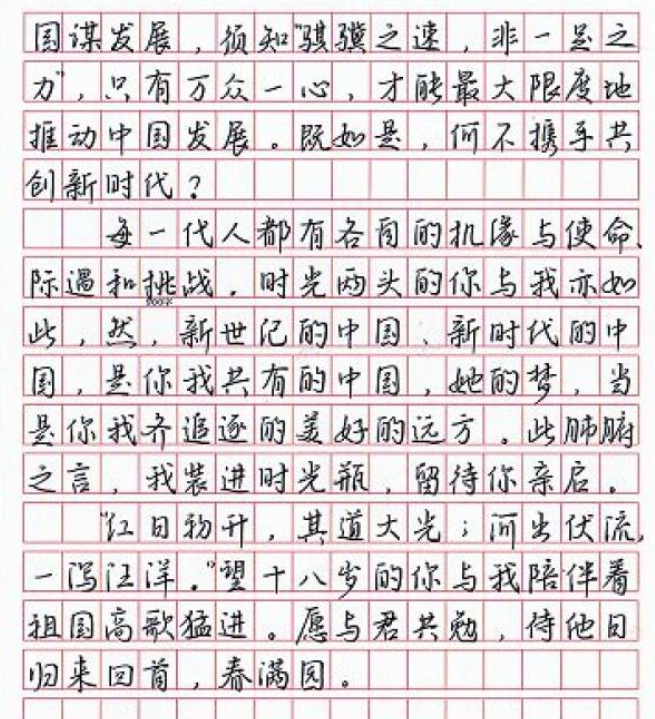 国谋发展，须知"骐骥之速，非一足之
力"，只有万众一心，才能最大限度地
推动中国发展。既如是，何不携手共
创新时代？
每一代人都有各自的机缘与使命、
际遇和挑战．时光两头的你与我亦如
此，然，新世纪的中国、新时代的中
国，是你我共有的中国，她的梦，当
是你我齐追逐的美好的远方。此肺腑
之言，我装进时光瓶，留待你亲启。
"红日初升，其道大光；河出伏流，
一泻汪洋．"望十八岁的你与我陪伴着
祖国高歌猛进。愿与君共勉，待他日
归来回首，春满园。